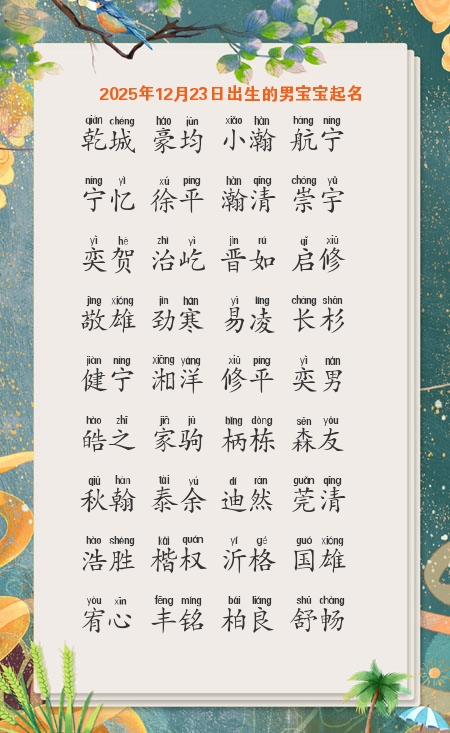 2025年12月23日出生的男宝宝起名
qián chéng háo jūn xiǎo hàn háng níng
乾城 豪均 小瀚 航宁
níng yì xú píng hàn qīng chóng yǔ
宁忆 徐平 瀚清 崇宇
yì hè zhì yì jìn rú qǐ xiū
奕贺 治屹 晋如 启修
jìng xióng jìn hán yì líng cháng shān
敬雄 劲寒 易凌 长杉
jiàn níng xiāng yáng xiū píng yì nán
健宁 湘洋 修平 奕男
hào zhī jiā jū bǐng dòng sēn yǒu
皓之 家驹 柄栋 森友
qiū hàn tài yú dí rán guǎn qīng
秋翰 泰余 迪然 莞清
hào shèng kǎi quán yí gé guó xióng
浩胜 楷权 沂格 国雄
yòu xīn fēng míng bǎi liáng shū chàng
宥心 丰铭 柏良 舒畅